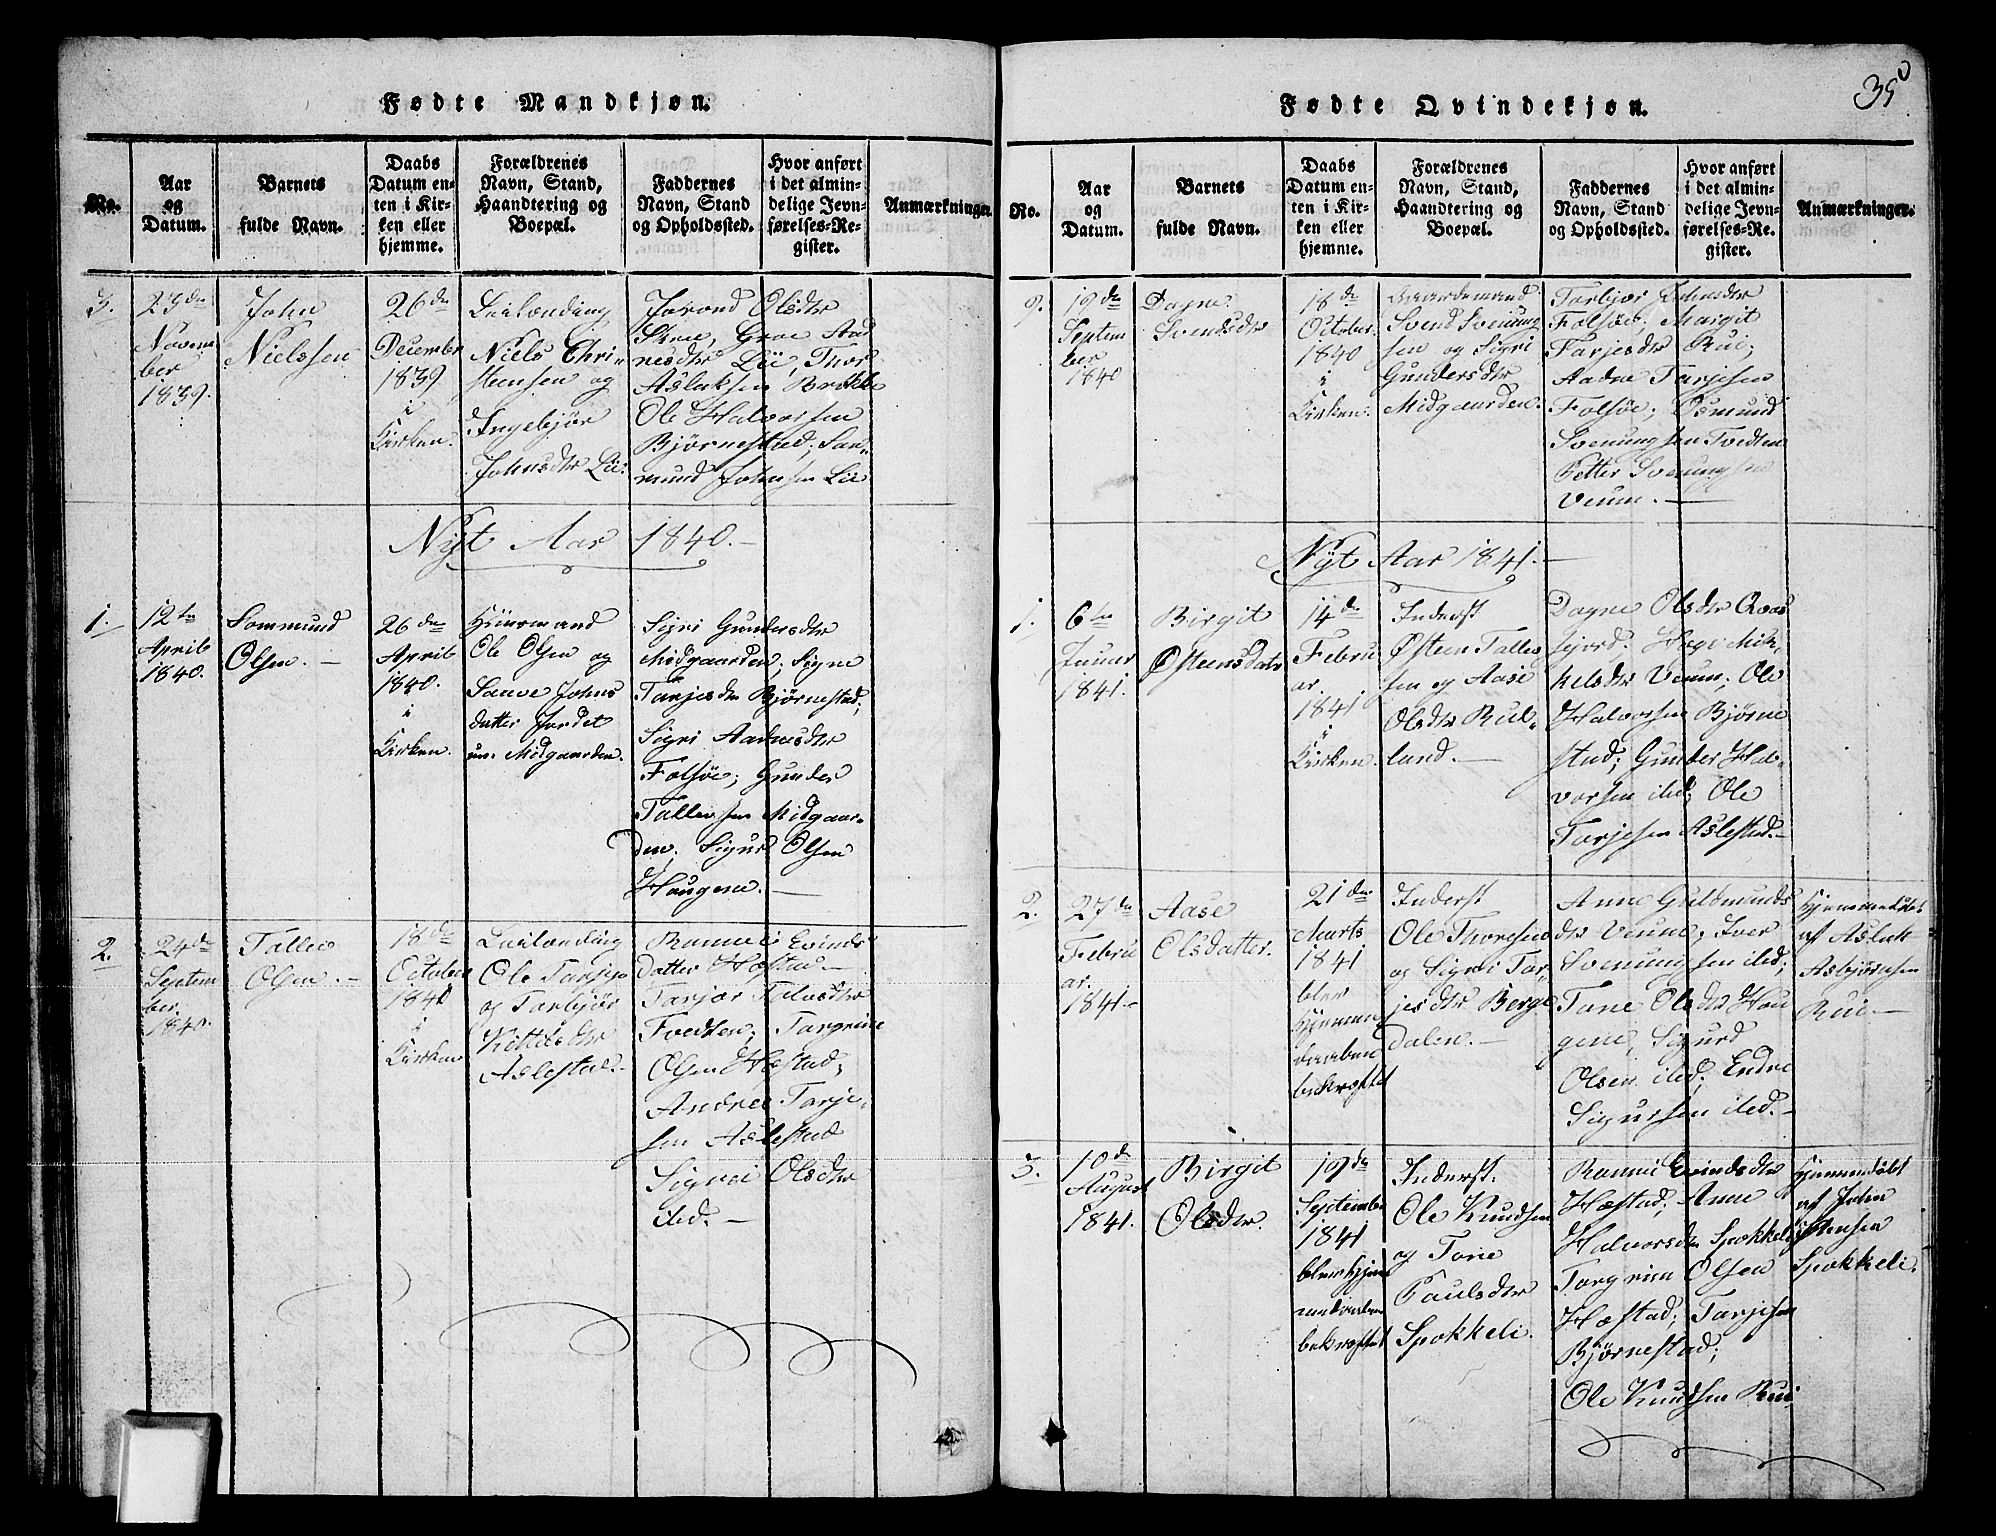 Fødte Mandkjøn.
No.
Aar
og
Datum.
Barnets
fulde Navn.
Daabs
Datum en-
ten i Kir-
ken eller
hjemme.
Forældrenes
Navn, Stand,
Haandtering og
Boepæl.
Faddernes
Navn, Stand
og Opholdssted.
Hvor anført
i det almin-
delige Jevn-
førelses-Re-
gister.
Anmærkninger.
3.
23de
Novem
ber
1839.
John
Nielssen
26de
December
1839
i
Kirken.
Leilænding
Niels Chri-
stensen og
Ingebjør
Johnsdtr Lii.
Jorond Olsdtr
Skree, Groe Aad
nesdtr Lii, Thor
Aslaksen Brekke
Ole Halvorsen
Bjørnestad; San-
mund Johnsen Lii
Nyt Aar 1840.
1.
12te
April
1840.
Sommund
Olsen.
26de
April
1840.
i
Kirken.
Huusmand
Ole Olsen og
Saave Johns
datter Jordet
un. Midgaarden.
Sigri Gundersdtr
Midgaarden; Signe
Tarjesdtr Bjørnestad;
Sigri Aadnesdtr
Folsöe; Gunder
Tallessen Midgaar-
den; Sigur Olsen
Haugene.
2.
24de
Septem
ber.
1840.
Tallev
Olsen.
18de
October
1840
i
Kirken
Leilænding
Ole Tarjes
og Torbjör
Kittilsdtr
Aslestad.
Ranvei Evinds
datter Hæstad
Tarjor Talvsdtr
Tvedten; Torgrim
Olsen Hæstad;
Andres Tarje-
sen Aslestad
Sigrei Olsdtr
ibid.
35
Fødte Qvindekjøn.
No.
Aar
og
Datum.
Barnets
fulde Navn.
Daabs
Datum en-
ten i Kir-
ken eller
hjemme.
Forældrenes
Navn, Stand,
Haandtering og
Boepæl.
Faddernes
Navn, Stand
og Opholdssted.
Hvor anført
i det almin-
delige Jevn-
førelses-Re-
gister.
Anmærkninger.
9.
19de
Septem
ber
1840
Dagne
Svensdtr
18de
October
1840
i
Kirken.
Gaardemand
Svend Svenung
sen og Sigri
Gundersdtr
Midgaarden.
Torbjor Johnsdtr
Folsöe, Margit
Tarjesdtr Rui;
Aadne Tarjesen
Folsöe; Osmund
Svenungsen Tvedten
Petter Svenungsen
Veum.
Nyt Aar 1841.
1.
6te
Januar
1841.
Birgit
Østensdatr
14de
Febru
ar.
1841
i
Kirken.
Inderst
Østen Talleg
sen og Aase
Olsdtr Rul-
land.
Dagne Olsdtr Qvas
fjord. Hæge Mik-
kelsdtr Veum; Ole
Halvorsen Bjørne
stad; Gunder Hal-
vorsen ibid; Ole
Tarjesen Aslestad.
2.
27de
Febru
ar.
1841.
Aase
Olsdatter.
21de
Marts
1841
blev
Hjemme
daaben
bekræftet
Inderst
Ole Thoresen
og Sigri Tar-
jesdtr Berge
dalen.
Anne Guldmunds
dtr Veum; Iver
Svenungsen ibid;
Tone Olsdtr Hau
gene, Sigurd
Olsen ibid; Endre
Sigursen ibid.
Hjemmedøbt
af Aslak
Asbjørnsen
Rui.
3.
10de
August
1841.
Birgit
Olsdtr.
19de
September
1841
blev Hjem
medaaben
bekræftet
Inderst.
Ole Knudsen
og Tone
Paulsdtr
Spokkeli.
Ranvei Evindsdtr
Hæstad; Anne
Halvorsdtr Spokkeli
Torgrim Olsen
Hæstad; Tarjesen
Bjørnestad;
Ole Knudsen Rui
Hjemmedøbt
af John
Stensen
Spokkeli.